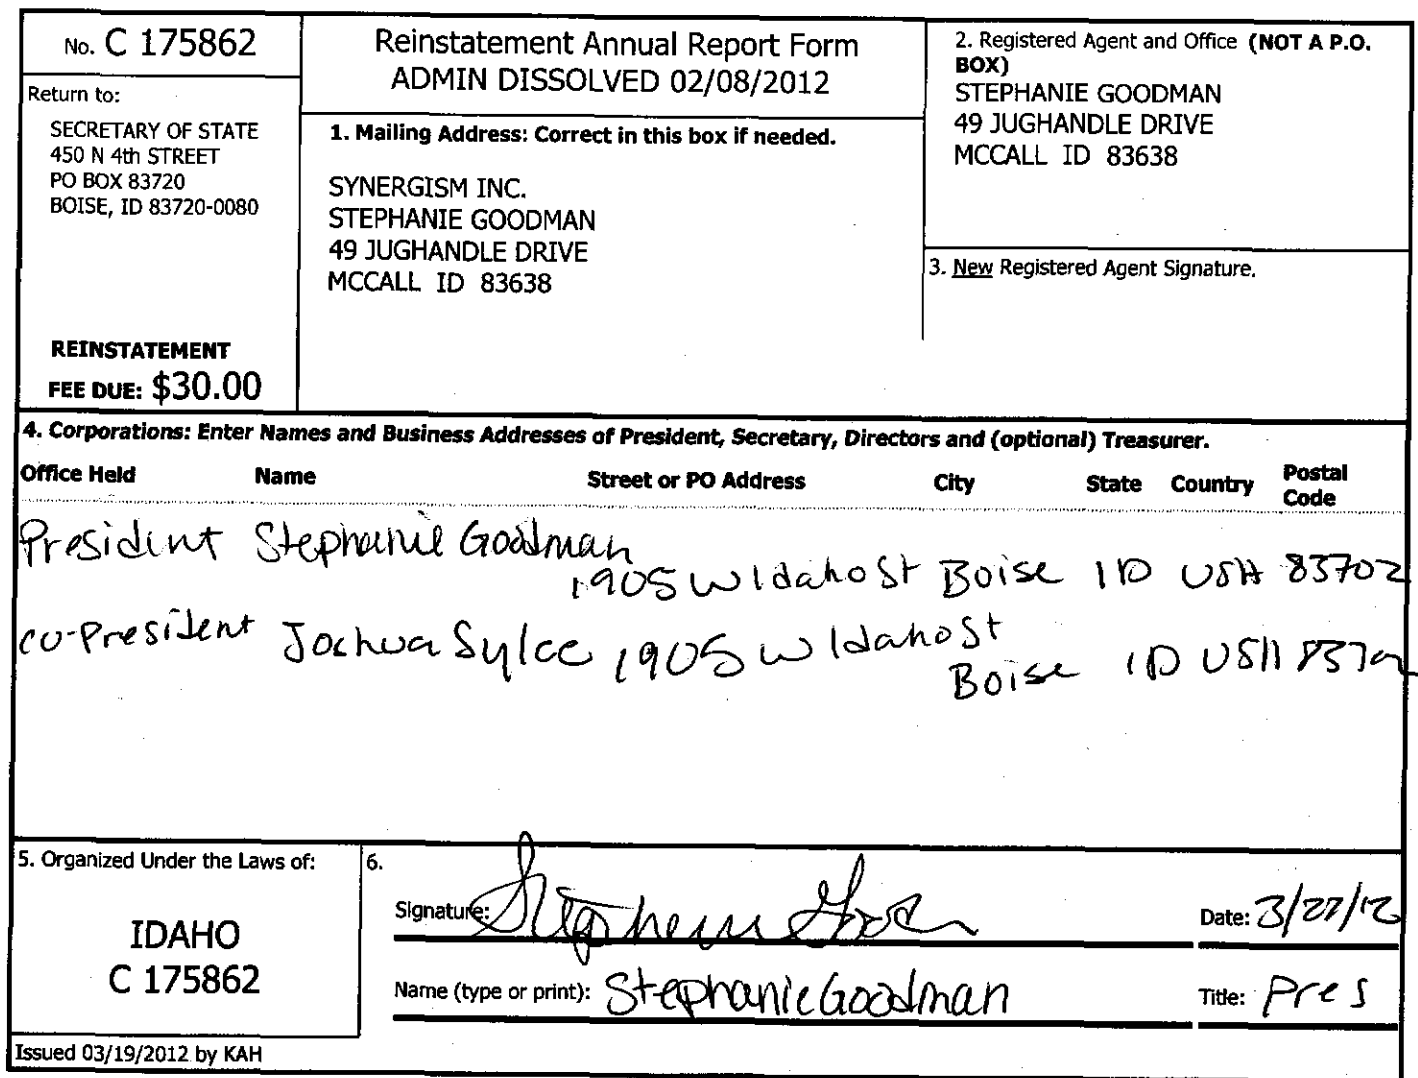 No. C 175862
Return to:
SECRETARY OF STATE
450 N 4th STREET
PO BOX 83720
BOISE, ID 83720-0080
REINSTATEMENT
FEE DUE: $30.00
Reinstatement Annual Report Form
ADMIN DISSOLVED 02/08/2012
1. Mailing Address: Correct in this box if needed.
SYNERGISM INC.
STEPHANIE GOODMAN
49 JUGHANDLE DRIVE
MCCALL ID 83638
2. Registered Agent and Office (NOT A P.O.
BOX)
STEPHANIE GOODMAN
49 JUGHANDLE DRIVE
MCCALL ID 83638
3. New Registered Agent Signature.
4. Corporations: Enter Names and Business Addresses of President, Secretary, Directors and (optional) Treasurer.
Office Held Name Street or PO Address City State Country Postal Code
President Stephanie Goodman
1905 W Idaho St Boise ID USA 83702
co-President Joshua 1905 W Idaho St
Boise ID USA 83702
5. Organized Under the Laws of:
IDAHO
C 175862
6.
Signature: Stephanie Date: 3/27/12
Name (type or print): Stephanie Goodman Title: Pres
Issued 03/19/2012 by KAH